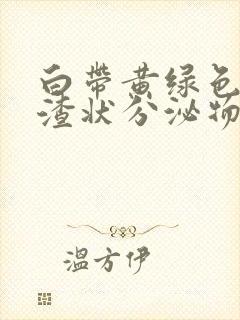 白带黄绿色
渣状分泌物
温方伊